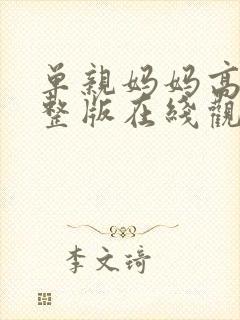 单親妈妈高
整版在綫觀
李文琦